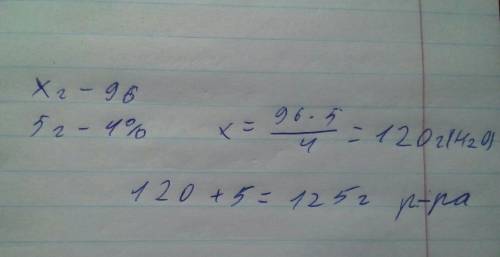 хг - 96
5г - 4% x = 96 · 5 / 4 = 120г(H2O)
120 + 5 = 125г р-ра